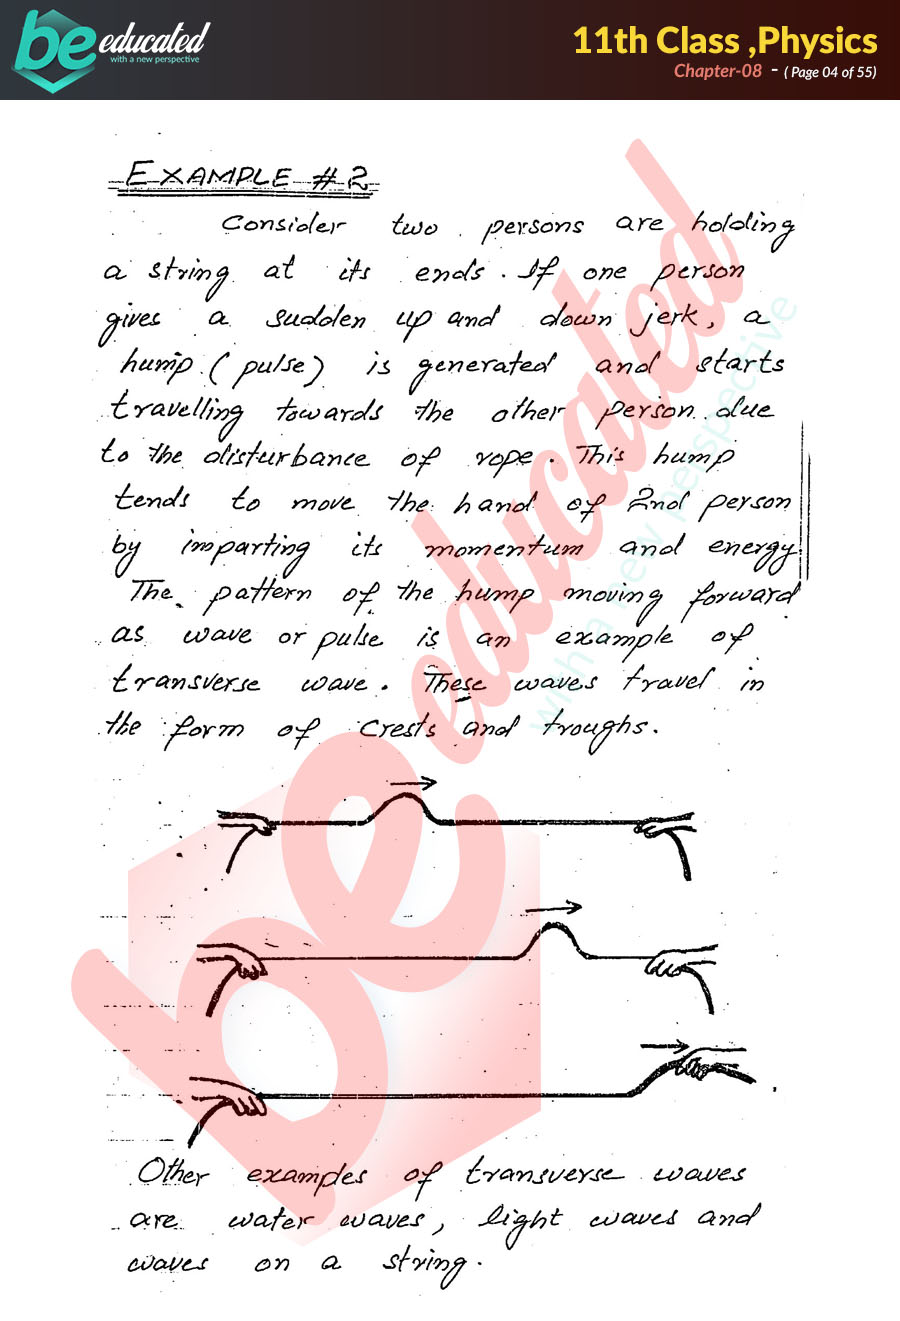 be educated
with a new perspective
11th Class ,Physics
Chapter-08 - ( Page 04 of 55)
EXAMPLE #2
Consider two persons are holding
a string at its ends. If one person
gives a sudden up and down jerk, a
hump (pulse) is generated and starts
travelling towards the other person due
to the disturbance of rope. This hump
tends to move the hand of 2nd person
by imparting its momentum and energy.
The pattern of the hump moving forward
as wave or pulse is an example of
transverse wave. These waves travel in
the form of Crests and troughs.
Other examples of transverse waves
are water waves, light waves and
waves on a string.
be educated
with a new perspective